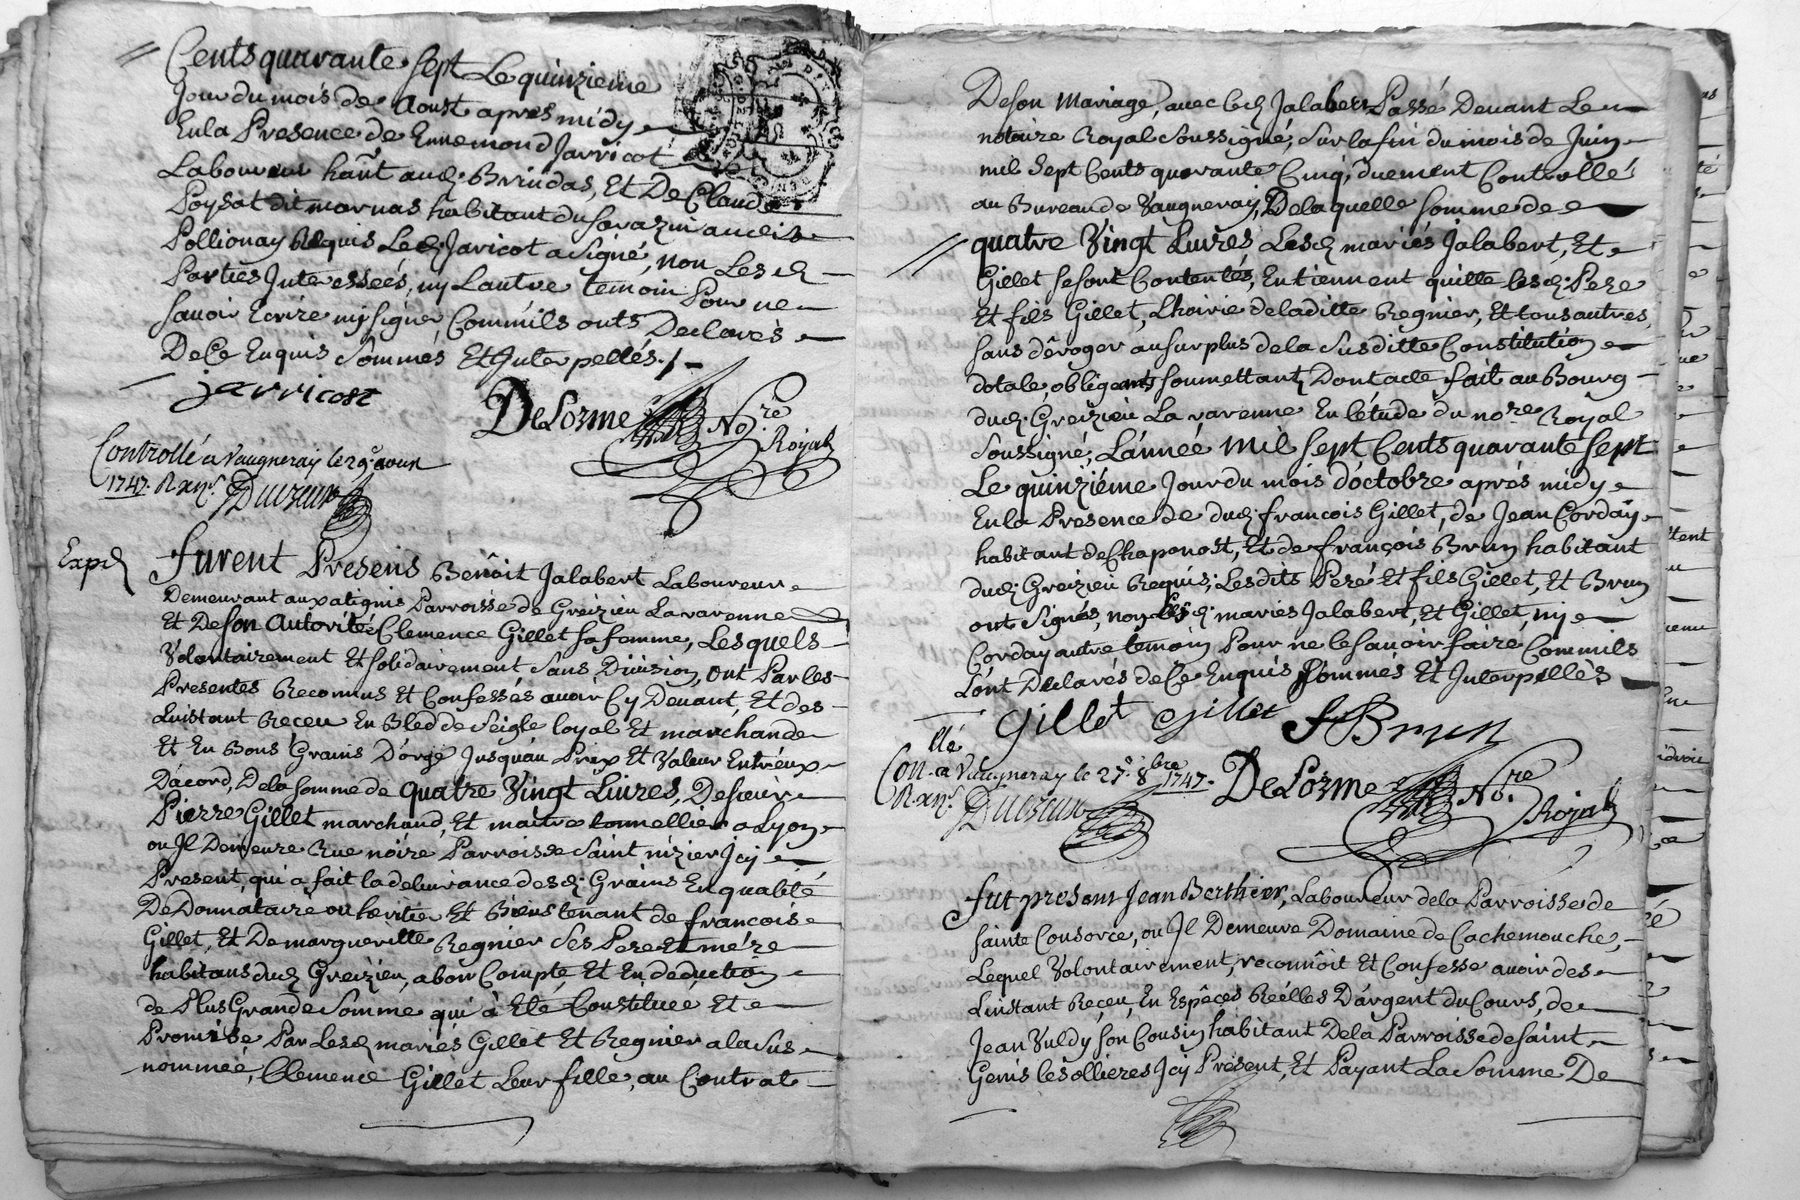 Cents quarante sept Le quinzieme
Jour du mois de Aoust apres midy
En la Presence de Ennemond Jarricot
Laboureur hañt aud. Brindas, Et De Claude
Poysat dit marnas habitant du Sarazin audit
Pollionay Requis Led. Jaricot a Signé, non Lesd.
Parties Interessées, ny L'autre temoin Pour ne
Savoir Ecrire ny signer Comm'ils onts Declarés
De Ce Enquis Sommés Et Interpellés ./.
jarricost
DeLorme No.re Royal
Controllé a Vaugneray le 29e aoust
1747. R xn s.
Exp.d
Furent Presens Benôit Jalabert Laboureur
Demeurant aux Parroisse de Greizieu Lavarenne
Et De son Autorité Clemence Gillet sa femme, Lesquels
Volontairement Et solidairement Sans Division, Ont Par les
Presentes Reconnus Et Confessés avoir Cy Devant, Et des
L'instant Receu En Bled de Seigle loyal Et marchande
Et En Bons Grains D'orge Jusqu'au Prix Et Valeur Entr'eux
D'acord, De la somme de quatre Vingt Livres, De sieur
Pierre Gillet marchand, Et maitre tonnellier a Lyon
ou Jl Demeure Rue noire Parroisse Saint nizier Jcy
Present, qui a fait la delivrance desd. Grains En qualité
De Donnataire ou heritier Et Biens tenant de francois
Gillet, Et De margueritte Regnier Ses Pere Et mére
habitans dud. Greizieu, a bon Compte, Et En déduction
de Plus Grande Somme qui à Eté Constituée Et
Promise Par Lesd. mariés Gillet Et Regnier a la Sus
nommée, Clemence Gillet Leur fille, au Contrat
De son Mariage, avec led. Jalabert Passé Devant Le
notaire Royal Soussigné, Sur la fin du mois de Juin
mil Sept Cents quarante Cinq, duement Controllé
au Bureau de Vaugneray, De laquelle somme de
quatre Vingt Livres Lesd. mariés Jalabert, Et
Gillet se sont Contentés, En tiennent quitte lesd. Pere
Et fils Gillet, L'hoirie de laditte Regnier, Et tous autres,
sans dêroger au surplus de la Susditte Constitution
dotale, obligeants soumettants Dont acte fait au Bourg
dud. Greizieu La varenne En l'étude du no.re Royal
Soussigné, L'année Mil sept Cents quarante sept
Le quinziéme Jour du mois d'octobre aprés midy
En la Presence de dud. francois Gillet, de Jean Corday
habitant de Chaponost, Et de françois Brun habitant
dud. Greizieu Requis; Lesdits Peré Et fils Gillet, Et Brun
ont Signés, non Lesd. mariés Jalabert, Et Gillet, ny
Corday autre temoin Pour ne le savoir faire Comm'ils
L'ont Declarés de Ce Enquis Sommes Et Interpellés
Gillet Gillet F Brun
Con.llé a Vaugneray le 27e 8bre 1747.
R xn s.
DeLorme No.re Royal
Fut present Jean Berthier, Laboureur de la Parroisse de
Sainte Consorce, ou Jl Demeure Domaine de Cachemouche,
Lequel Volontairement, reconnôit Et Confesse avoir des
L'instant Receu, En Espéces Réelles D'argent du Cours, de
Jean Vuldy son Cousin habitant De la Parroisse de saint
Genis les ollieres Jcy Présent, Et Payant La Somme De